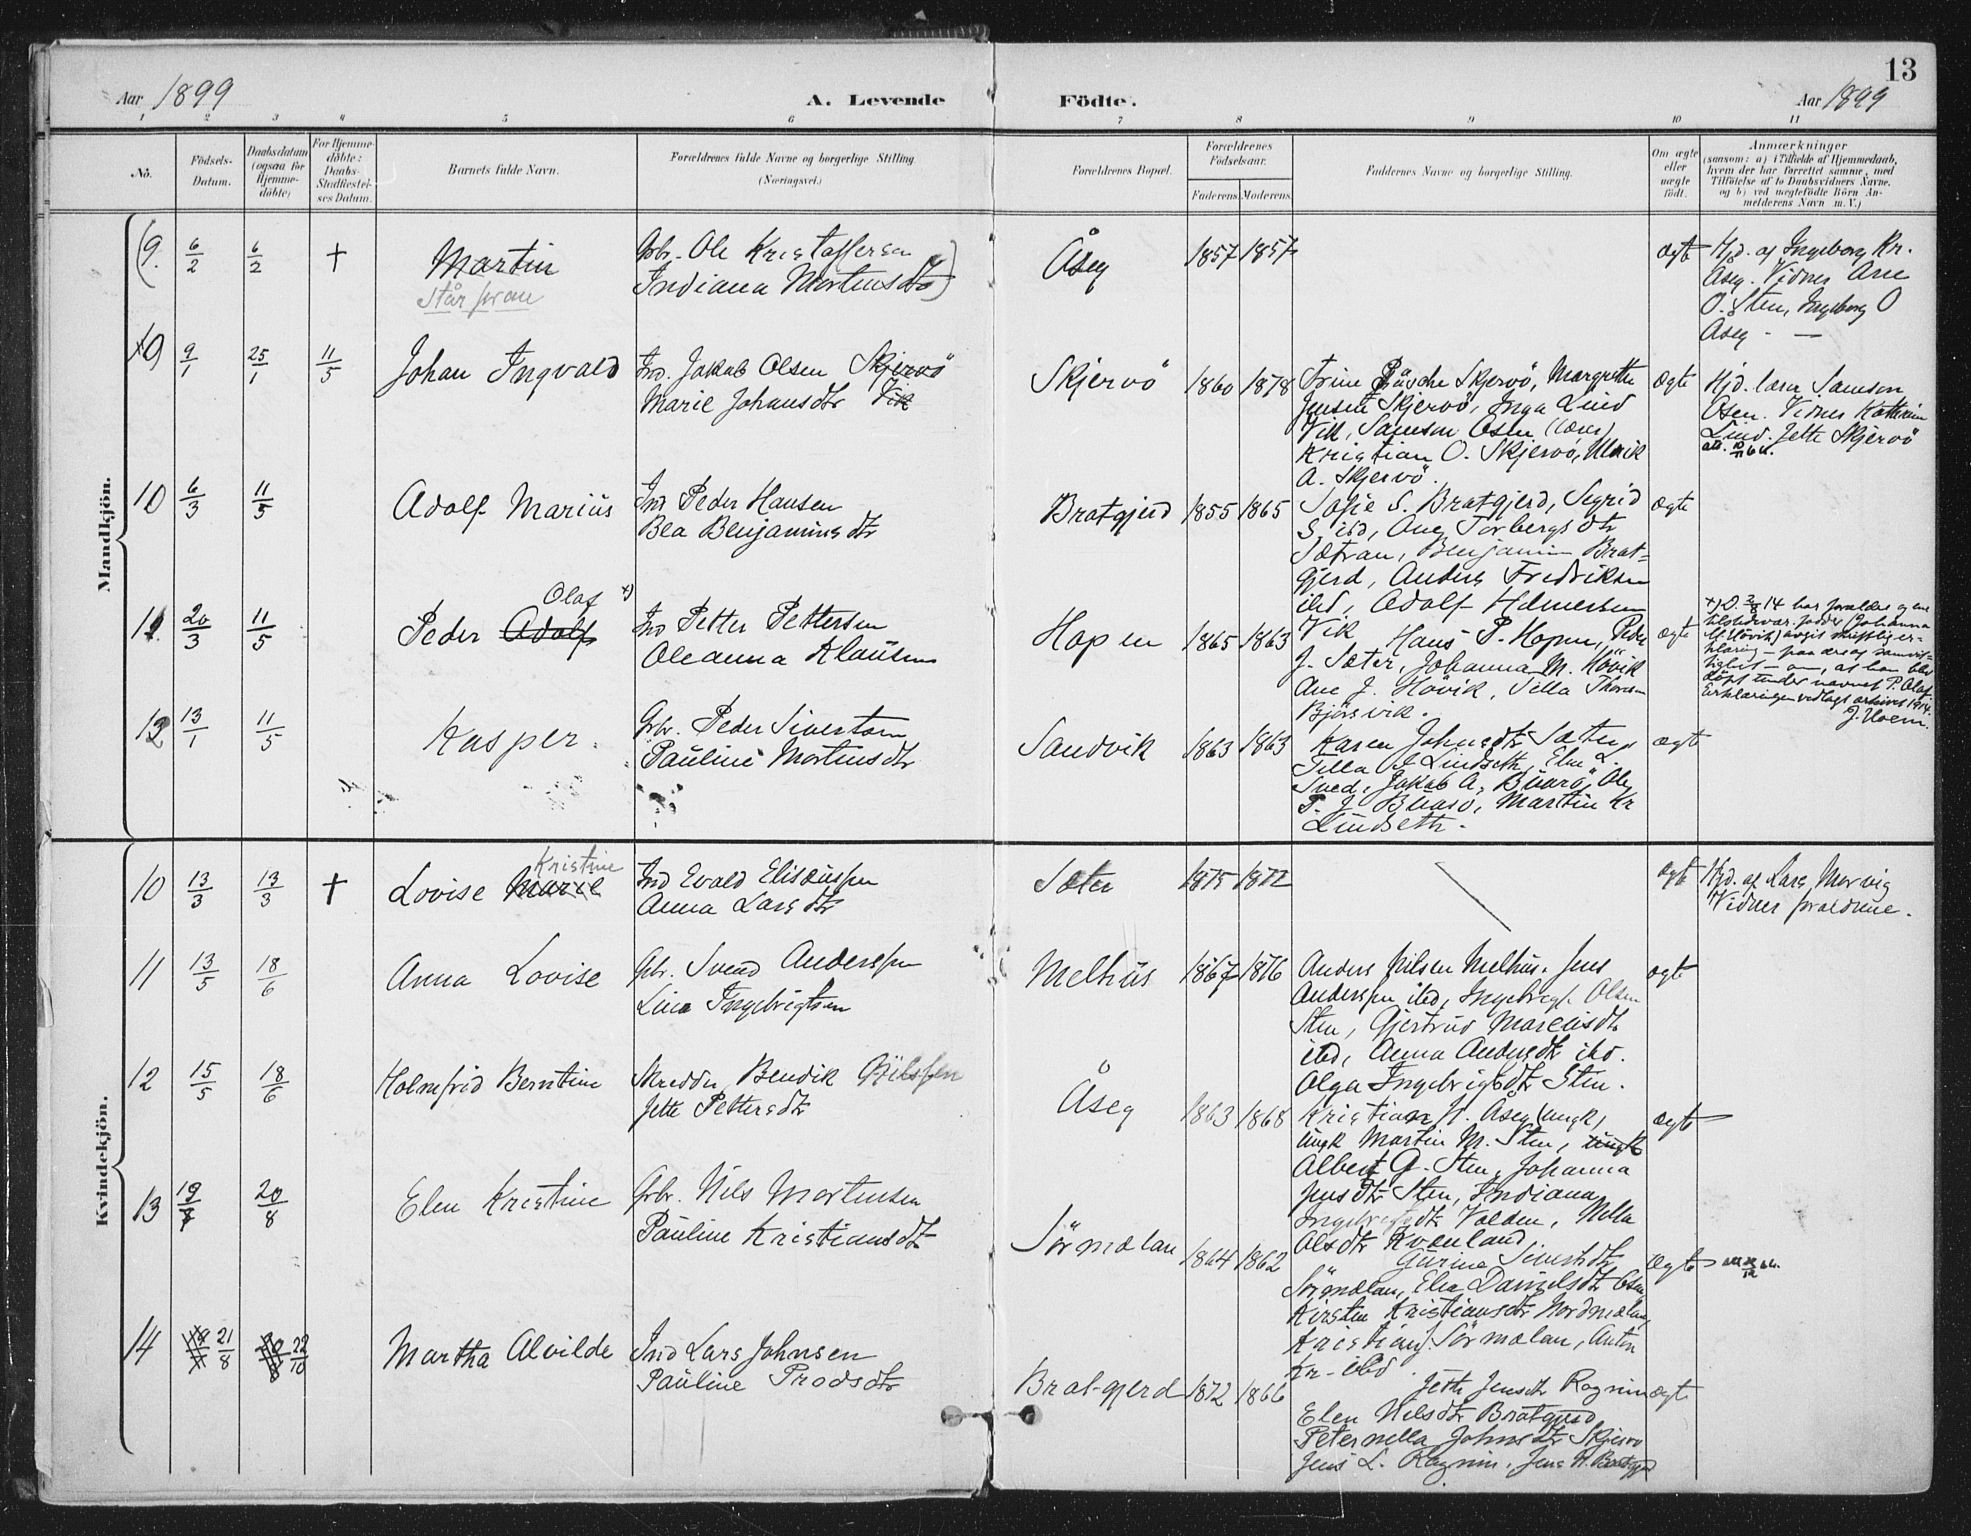 Aar 1899
A. Levende
Födte.
Aar 1899
13
1 2 3 4 5 6 7 8 9 10 11
No.
Födsels-
Datum.
Daabsdatum
(ogsaa for
Hjemme-
döbte)
For Hjemme-
döbte:
Daabs-
Stadfæstel-
ses Datum.
Barnets fulde Navn.
Forældrenes fulde Navne og borgerlige Stilling.
(Næringsvei.)
Forældrenes Bopæl.
Forældrenes
Födselsaar.
Faderens Moderens
Faddernes Navne og borgerlige Stilling.
Om ægte
eller
uægte
födt.
Anmærkninger
(saasom: a) i Tilfælde af Hjemmedaab,
hvem der har forrettet samme, med
Tilföielse af to Daabsvidners Navne,
og b) ved uegtefödte Börn An-
melderens Navn m. V.)
Mandkjön.
(9. 6/2 6/2 + Martin
Står foran
Gbr. Ole Kristoffersen
Indiana Mortensdtr)
Åseg 1857 1857
ægte
Hjd. af Ingeborg Kr.
Åseg. Vidner Ane
O. Sten, Ingeborg O
Åseg. —
9 9/1 25/1 11/5 Johan Ingvald
Ind. Jakob Olsen Skjervö
Marie Johansdtr Vik
Skjervö 1860 1878
Trine Skjervö, Margrethe
Jensen Skjervö, Inga Lind
Vik, Samson Osen (lærer)
Kristian O. Skjervö, Ulrik
A. Skjervö.
Ægte
Hjd. lærer Samson
Osen. Vidner Kathrine
Lind. Jette Skjervö
10 6/3 11/5 Adolf Marius
Ind Peder Hansen
Bea Benjaminsdtr
Bratgjerd 1855 1865
Sofie S. Bratgjerd, Sigrid
S. ibd, Ane Torbergsdtr
Sætran, Benjamin Brat-
gjerd, Anders Fredriksen
ibd, Adolf Hilmersen
Vik
Ægte
11 20/3 11/5 Peder Adolf Olaf x)
Ind Petter Pettersen
Oleanna Klausen
Hopen 1865 1863
Hans P. Hopen, Peder
J. Sæter, Johanna M. Hövik
Ane J. Hövik, Silla Thoresen
Bjørsvik.
ægte
x) D. 2/8 14 har forældre og en
tilstedevær. fadder (Johanna
M. Hövik) avgit skriftlig er-
klæring — paa ære og samvit-
tighet — om, at han blev
döpt under navnet P. Olaf.
Erklæringen vedlagt arkivet 1914.
J. Hoem.
12 13/1 11/5 Kasper.
Gbr. Peder Sivertsen
Pauline Mortensdtr
Sandvik 1863 1863
Karen Johnsdtr Sæter,
Silla J Lindseth, Elen L.
Sved, Jakob A. Buarö, Ole
P. J Buarö, Martin Kr
Lindseth.
ægte
Kvindekjön.
10 13/3 13/3 + Lovise Marie Kristine
Ind Evald Elisæussen
Anna Larsdtr
Sæter 1875 1872
ægte
Hjd. af Lars Morvig
Vidner forældrene.
11 13/5 18/6 Anna Lovise
Gbr. Svend Anderssen
Lina Ingebrigtsen
Melhus 1867 1876
Anders Nilsen Melhus. Jens
Anderssen ibd, Ingebrigt Olsen
Sten, Gjertrud Mareusdtr
ibd, Anna Andersdtr ibd.
Olga Ingebrigtsdtr Sten.
ægte
12 15/5 18/6 Holmfrid Berntine
Skredder Bendik
Jette Pettersdtr
Åseg 1863 1868
Kristian H. Åseg ungk,
ungk Martin M. Sten, ungk
Albert G. Sten, Johanna
Jensdtr Sten, Indiana
Ingebrigtsdtr Valden, Nella
Olsdtr Kvenland
Ægte
13 19/7 20/8 Elen Kristine
Gbr. Nils Mortensen
Pauline Kristiansdtr
Sörmælan 1864 1862
Gurine Sivertsdtr
Sörmælan, Elia Danielsdtr Osen
Kirsten Kristiansdtr Nordmælan,
Kristian J. Sörmælan, Anton
Kr. ibd.
Ægte
14 21/8 22/10 Martha Alvilde
Ind Lars Johnsen
Pauline Prodsdtr
Bratgjerd 1872 1866
Jette Jensdtr Ragnin
Elen Nilsdtr Bratgjerd
Peternella Johnsdtr Skjervö
Jens L. Ragnin. Jens H. Bratgjerd
ægte